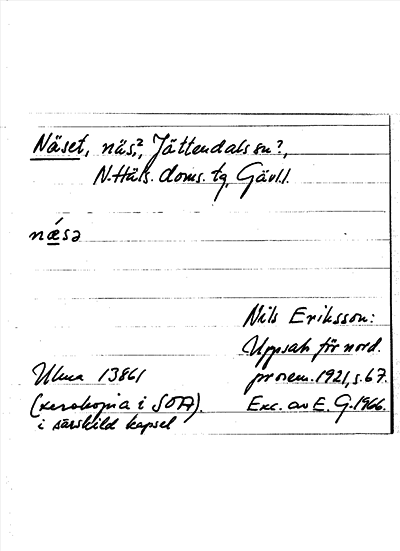 Näset, näs?, Jättendals sn?,
N.Häls. doms. tg, Gävl.l.
næ´sə
Nils Eriksson:
Uppsats för nord.
prosem. 1921, s.67.
Exc. av E. G. 1966.
Ulma 13861
(xerokopia i SOA).
i särskild kapsel